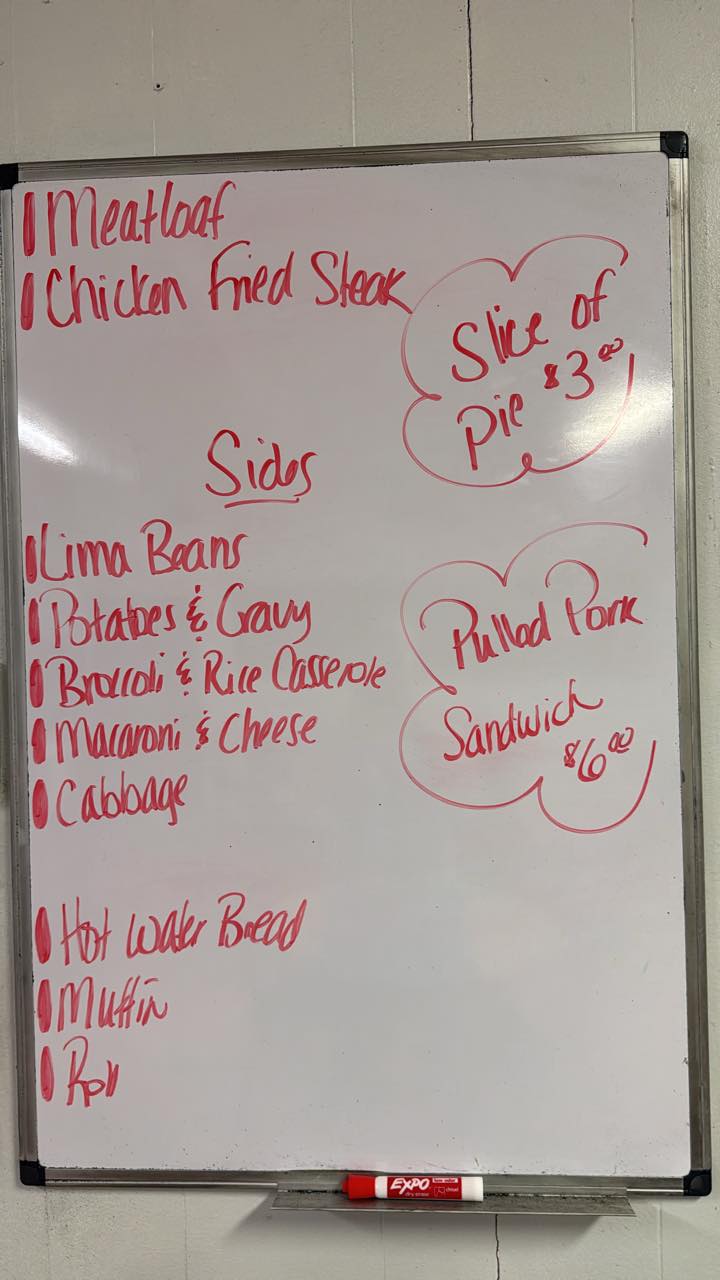 Meatloaf
Chicken Fried Steak
Slice of
Pie $3.00
Sides
Lima Beans
Potatoes & Gravy
Broccoli & Rice Casserole
Macaroni & Cheese
Cabbage
Pulled Pork
Sandwich
$6.00
Hot Water Bread
Muffin
Roll
EXPO
dry erase